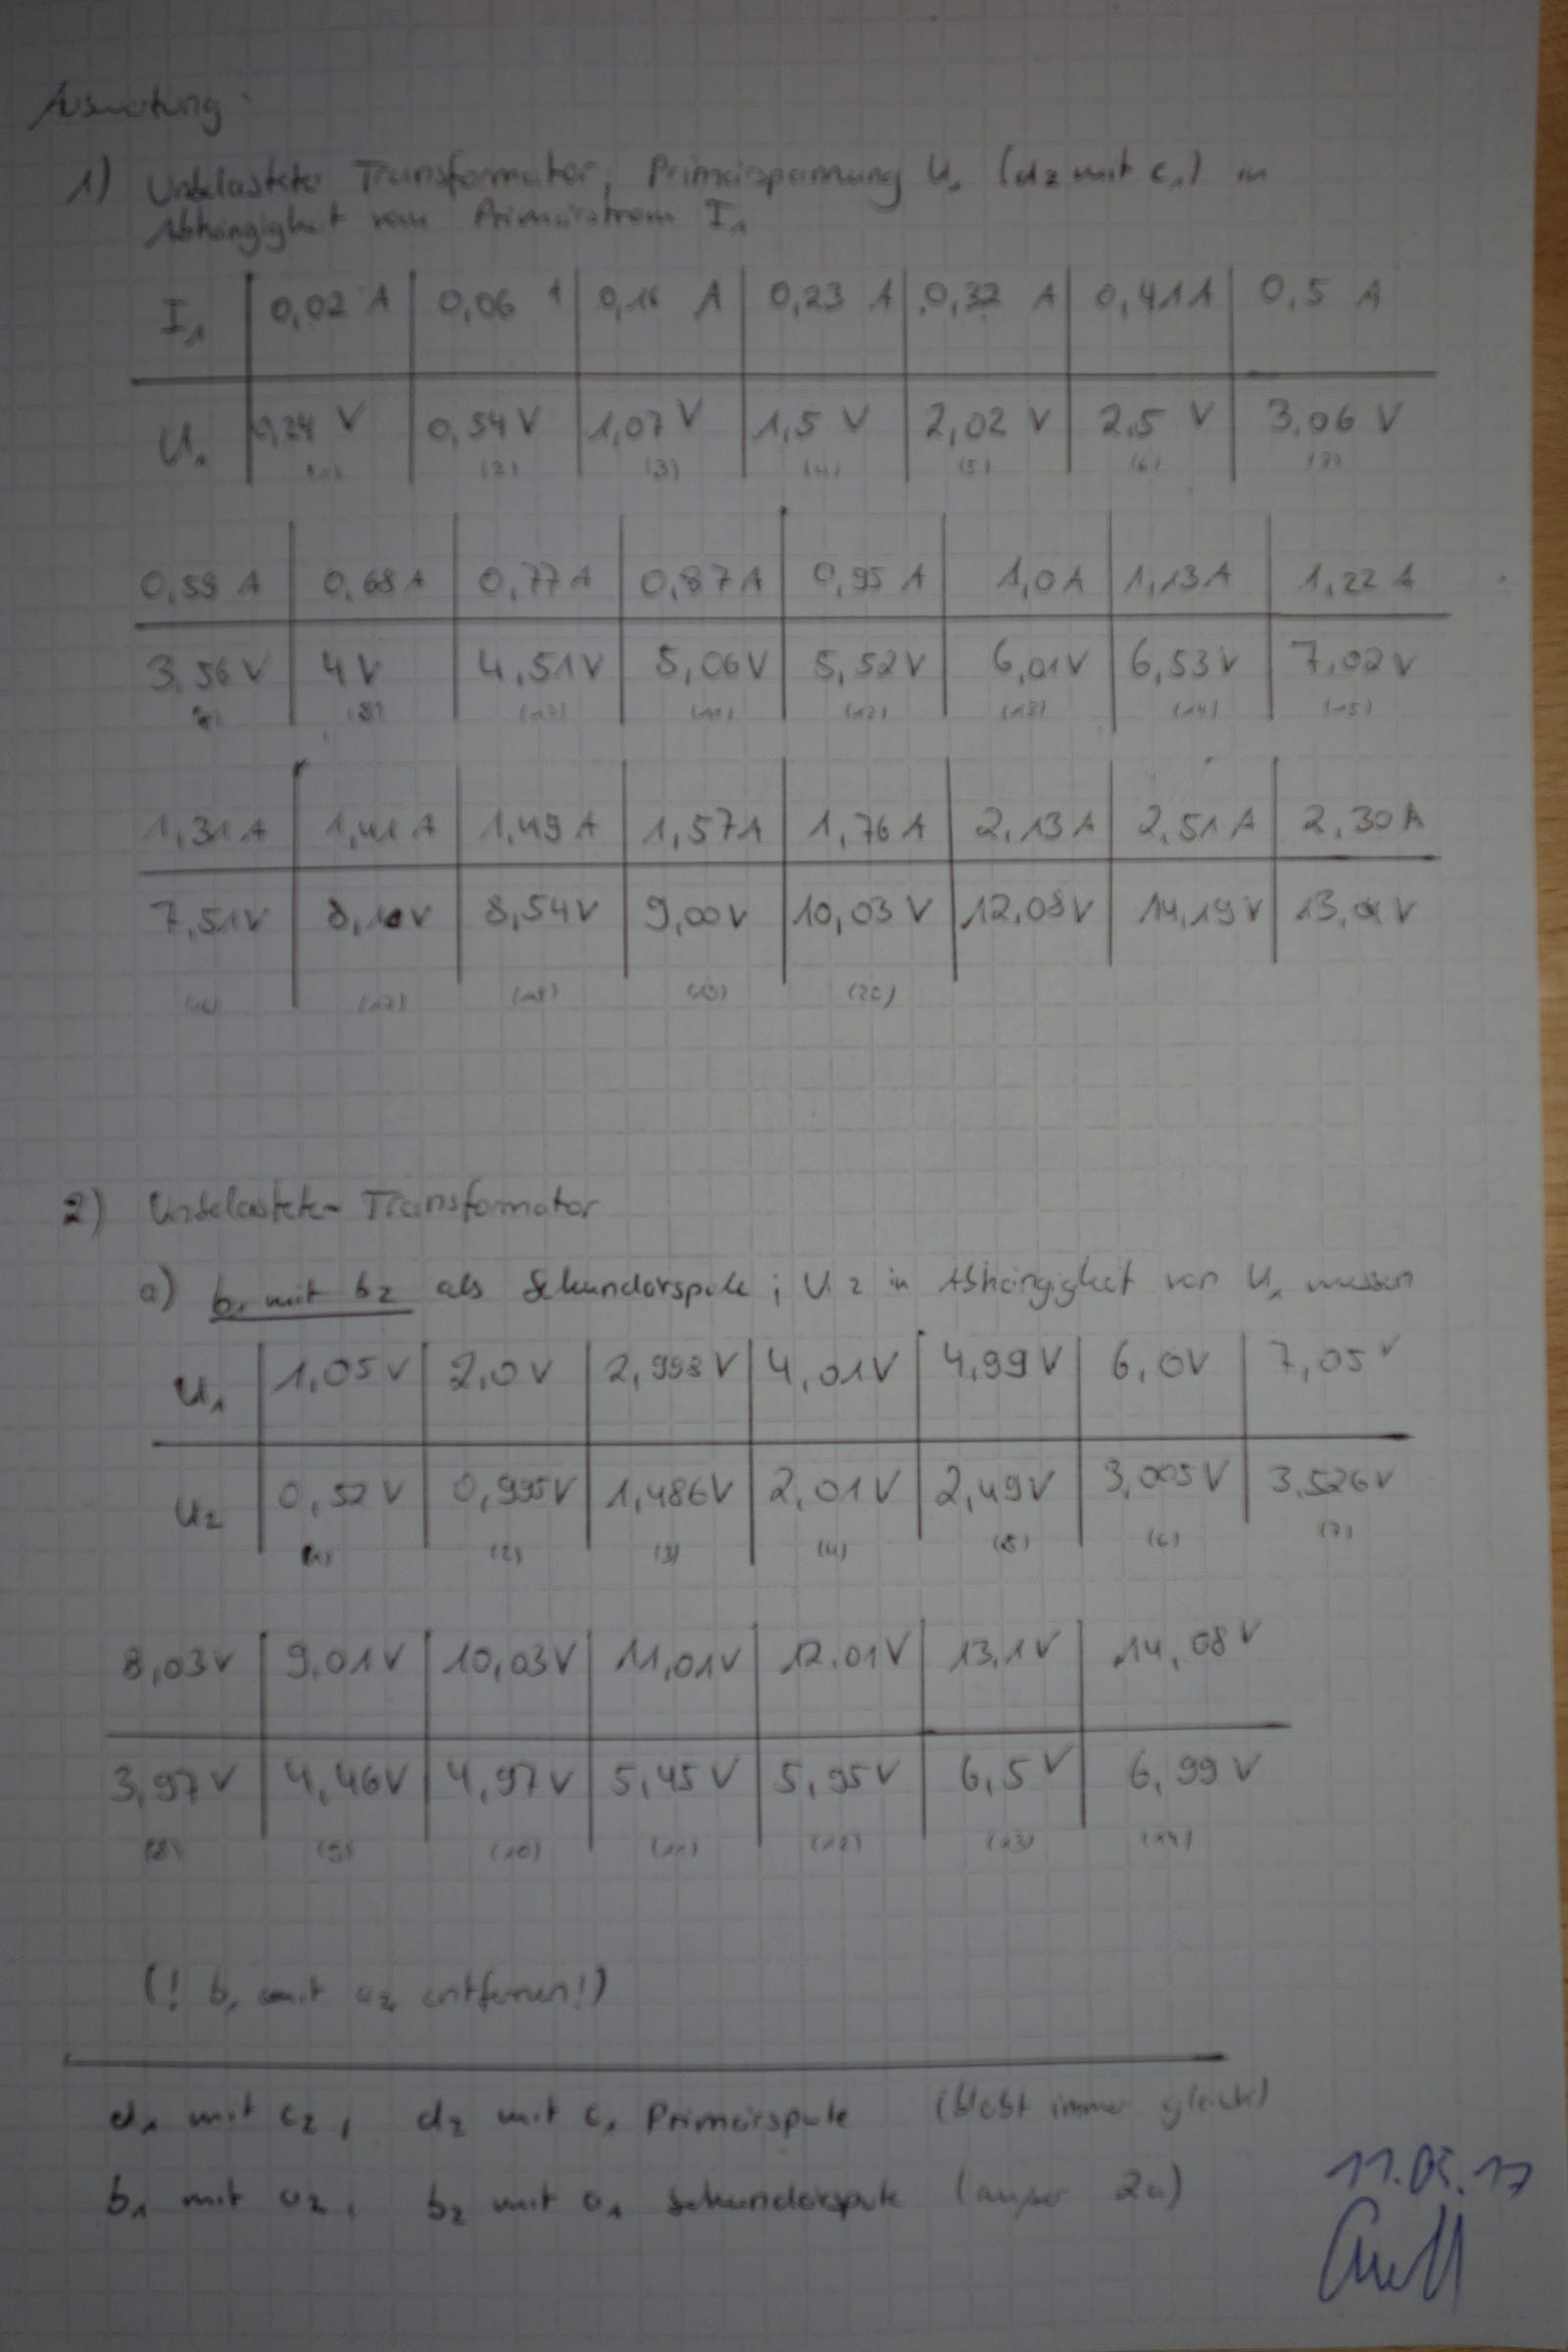 Auswertung:
1) Unbelasteter Transformator, Primärspannung U₁ (d₂ mit c₁) in
Abhängigkeit vom Primärstrom I₁
I₁ 0,02 A 0,06 A 0,16 A 0,23 A 0,32 A 0,41 A 0,5 A
U₁ 0,24 V 0,54 V 1,07 V 1,5 V 2,02 V 2,5 V 3,06 V
(1) (2) (3) (4) (5) (6) (7)
0,59 A 0,68 A 0,77 A 0,87 A 0,95 A 1,0 A 1,13 A 1,22 A
3,56 V 4 V 4,51 V 5,06 V 5,52 V 6,01 V 6,53 V 7,02 V
(8) (9) (10) (11) (12) (13) (14) (15)
1,31 A 1,41 A 1,49 A 1,57 A 1,76 A 2,13 A 2,51 A 2,30 A
7,51 V 8,10 V 8,54 V 9,00 V 10,03 V 12,08 V 14,19 V 13,01 V
(16) (17) (18) (19) (20)
2) Unbelasteter Transformator
a) b₁ mit b₂ als Sekundärspule; U₂ in Abhängigkeit von U₁ messen
U₁ 1,05 V 2,0 V 2,998 V 4,01 V 4,99 V 6,0 V 7,05 V
U₂ 0,52 V 0,995 V 1,486 V 2,01 V 2,49 V 3,005 V 3,526 V
(1) (2) (3) (4) (5) (6) (7)
8,03 V 9,01 V 10,03 V 11,01 V 12,01 V 13,1 V 14,08 V
3,97 V 4,46 V 4,97 V 5,45 V 5,95 V 6,5 V 6,99 V
(8) (9) (10) (11) (12) (13) (14)
(! b₁ mit a₂ entfernen!)
d₁ mit c₂, d₂ mit c₁ Primärspule (bleibt immer gleich)
b₁ mit a₂, b₂ mit a₁ Sekundärspule (außer 2a)
11.05.17